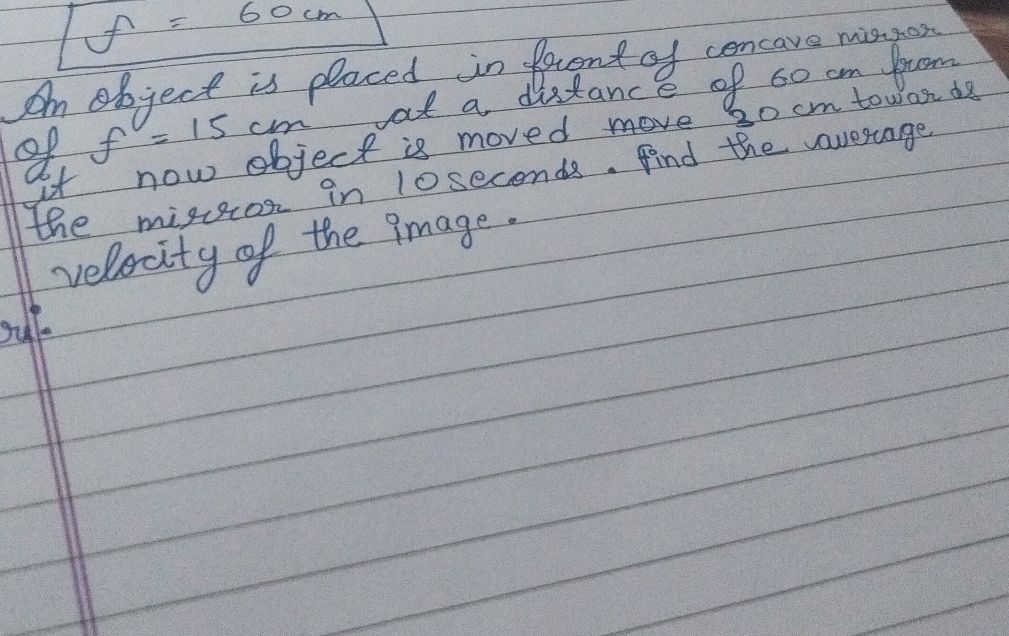 f = 60 cm
An object is placed in front of concave mirror
of f = 15 cm at a distance of 60 cm from
it now object is moved move 30 cm towards
the mirror in 10 seconds. find the average
velocity of the image.